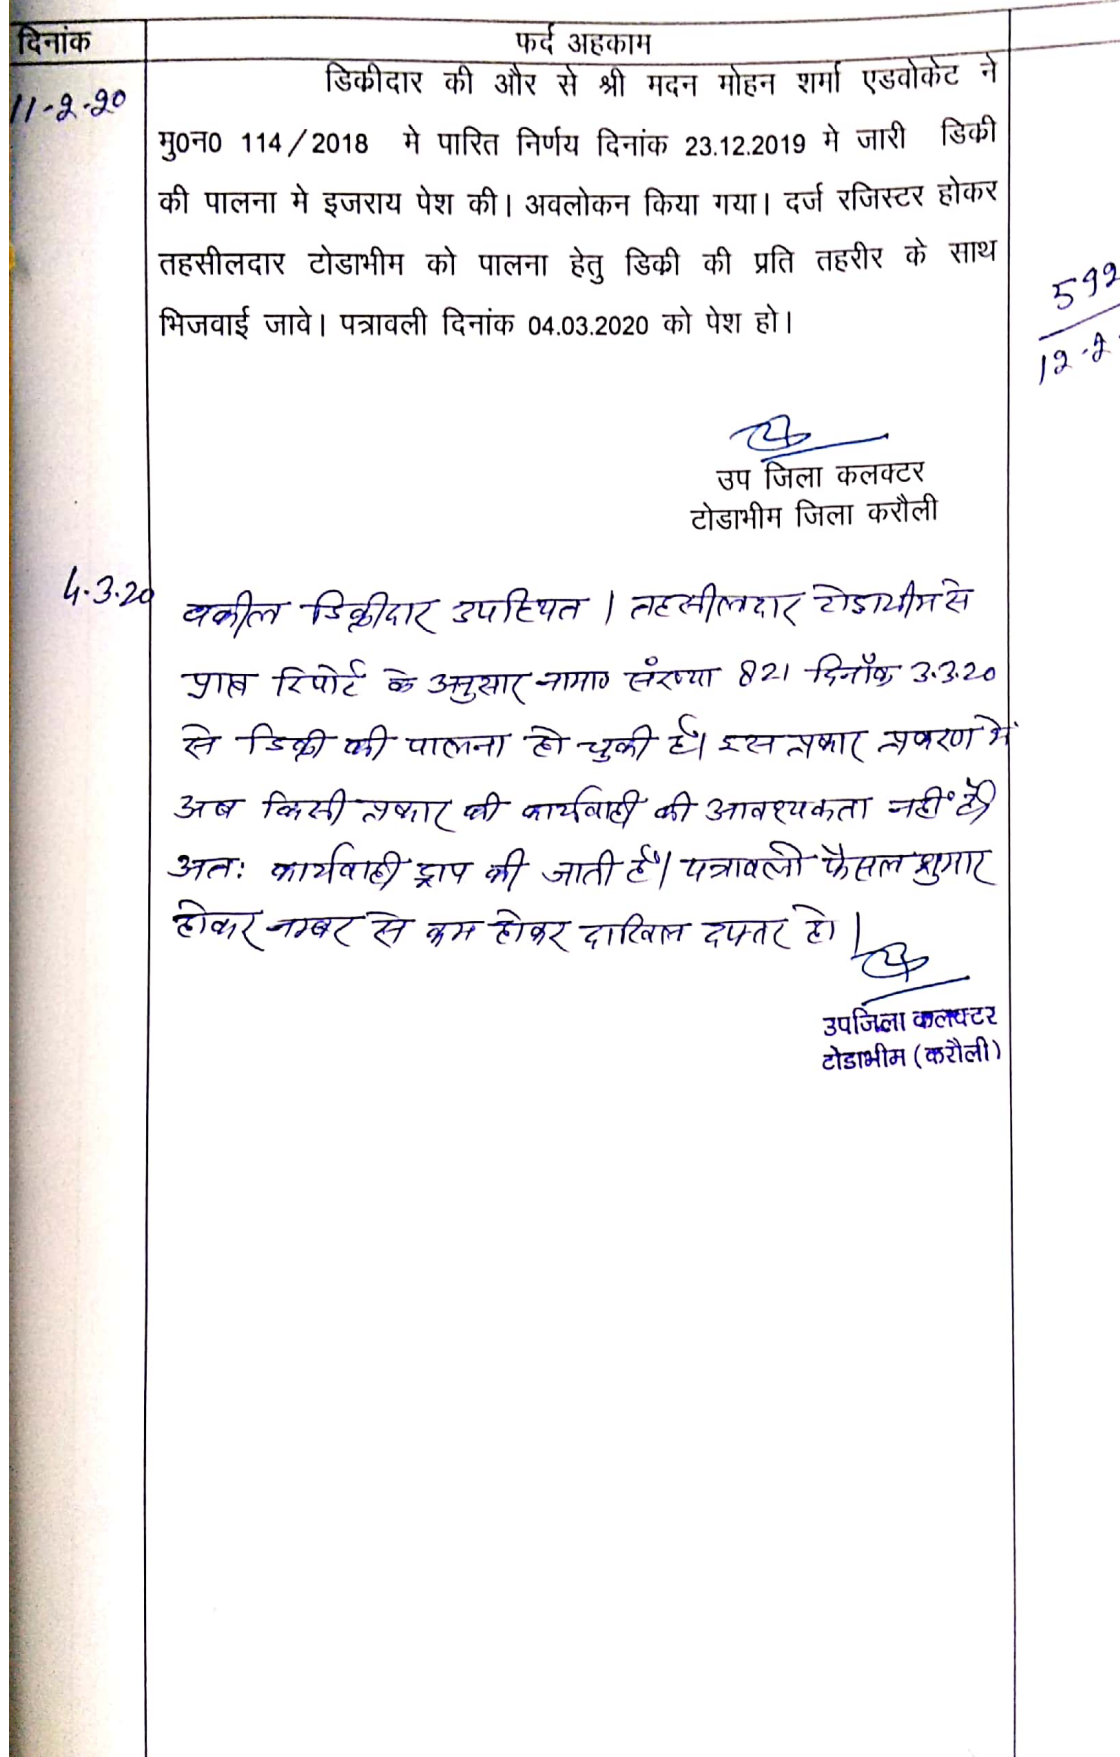 दिनांक
फर्द अहकाम
11-2-20
डिकीदार की और से श्री मदन मोहन शर्मा एडवोकेट ने
मु0न0 114/2018 मे पारित निर्णय दिनांक 23.12.2019 मे जारी डिकी
की पालना मे इजराय पेश की। अवलोकन किया गया। दर्ज रजिस्टर होकर
तहसीलदार टोडाभीम को पालना हेतु डिकी की प्रति तहरीर के साथ
भिजवाई जावे। पत्रावली दिनांक 04.03.2020 को पेश हो।
592
12-2
उप जिला कलक्टर
टोडाभीम जिला करौली
4.3.20
वकील डिक्रीदार उपस्थित । तहसीलदार टोडाभीम से
प्राप्त रिपोर्ट के अनुसार नामा0 संख्या 821 दिनॉक 3.3.20
से डिक्री की पालना हो चुकी है। इस प्रकार प्रकरण में
अब किसी प्रकार की कार्यवाही की आवश्यकता नहीं है।
अतः कार्यवाही ड्राप की जाती है। पत्रावली फैसल शुमार
होकर नम्बर से कम होकर दाखिल दफ्तर हो।
उपजिला कलक्टर
टोडाभीम (करौली)